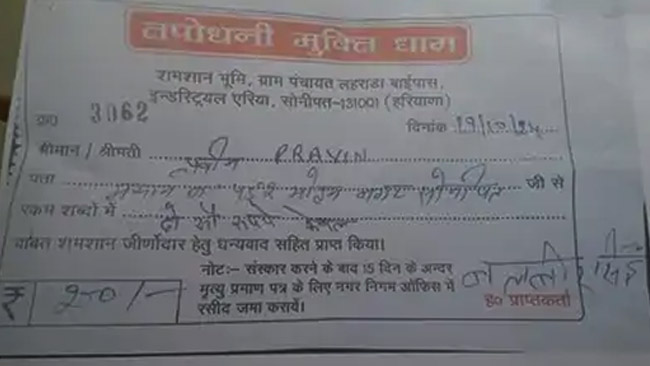 तपोधनी मुक्ति धाम
शमशान भूमि, ग्राम पंचायत लहराडा बाईपास,
इन्डस्ट्रियल एरिया, सोनीपत-131001 (हरियाणा)
क्र० 3062
दिनांक 19/10/24
श्रीमान / श्रीमती प्रवीन PRAVIN
पता मकान न० जी से
रकम शब्दों में दो सौ रूपये केवल
बाबत शमशान जीर्णोदार हेतु धन्यवाद सहित प्राप्त किया।
नोट:- संस्कार करने के बाद 15 दिन के अन्दर
मृत्यु प्रमाण पत्र के लिए नगर निगम ऑफिस में
रसीद जमा करायें।
₹ 200/-
ह० प्राप्तकर्ता